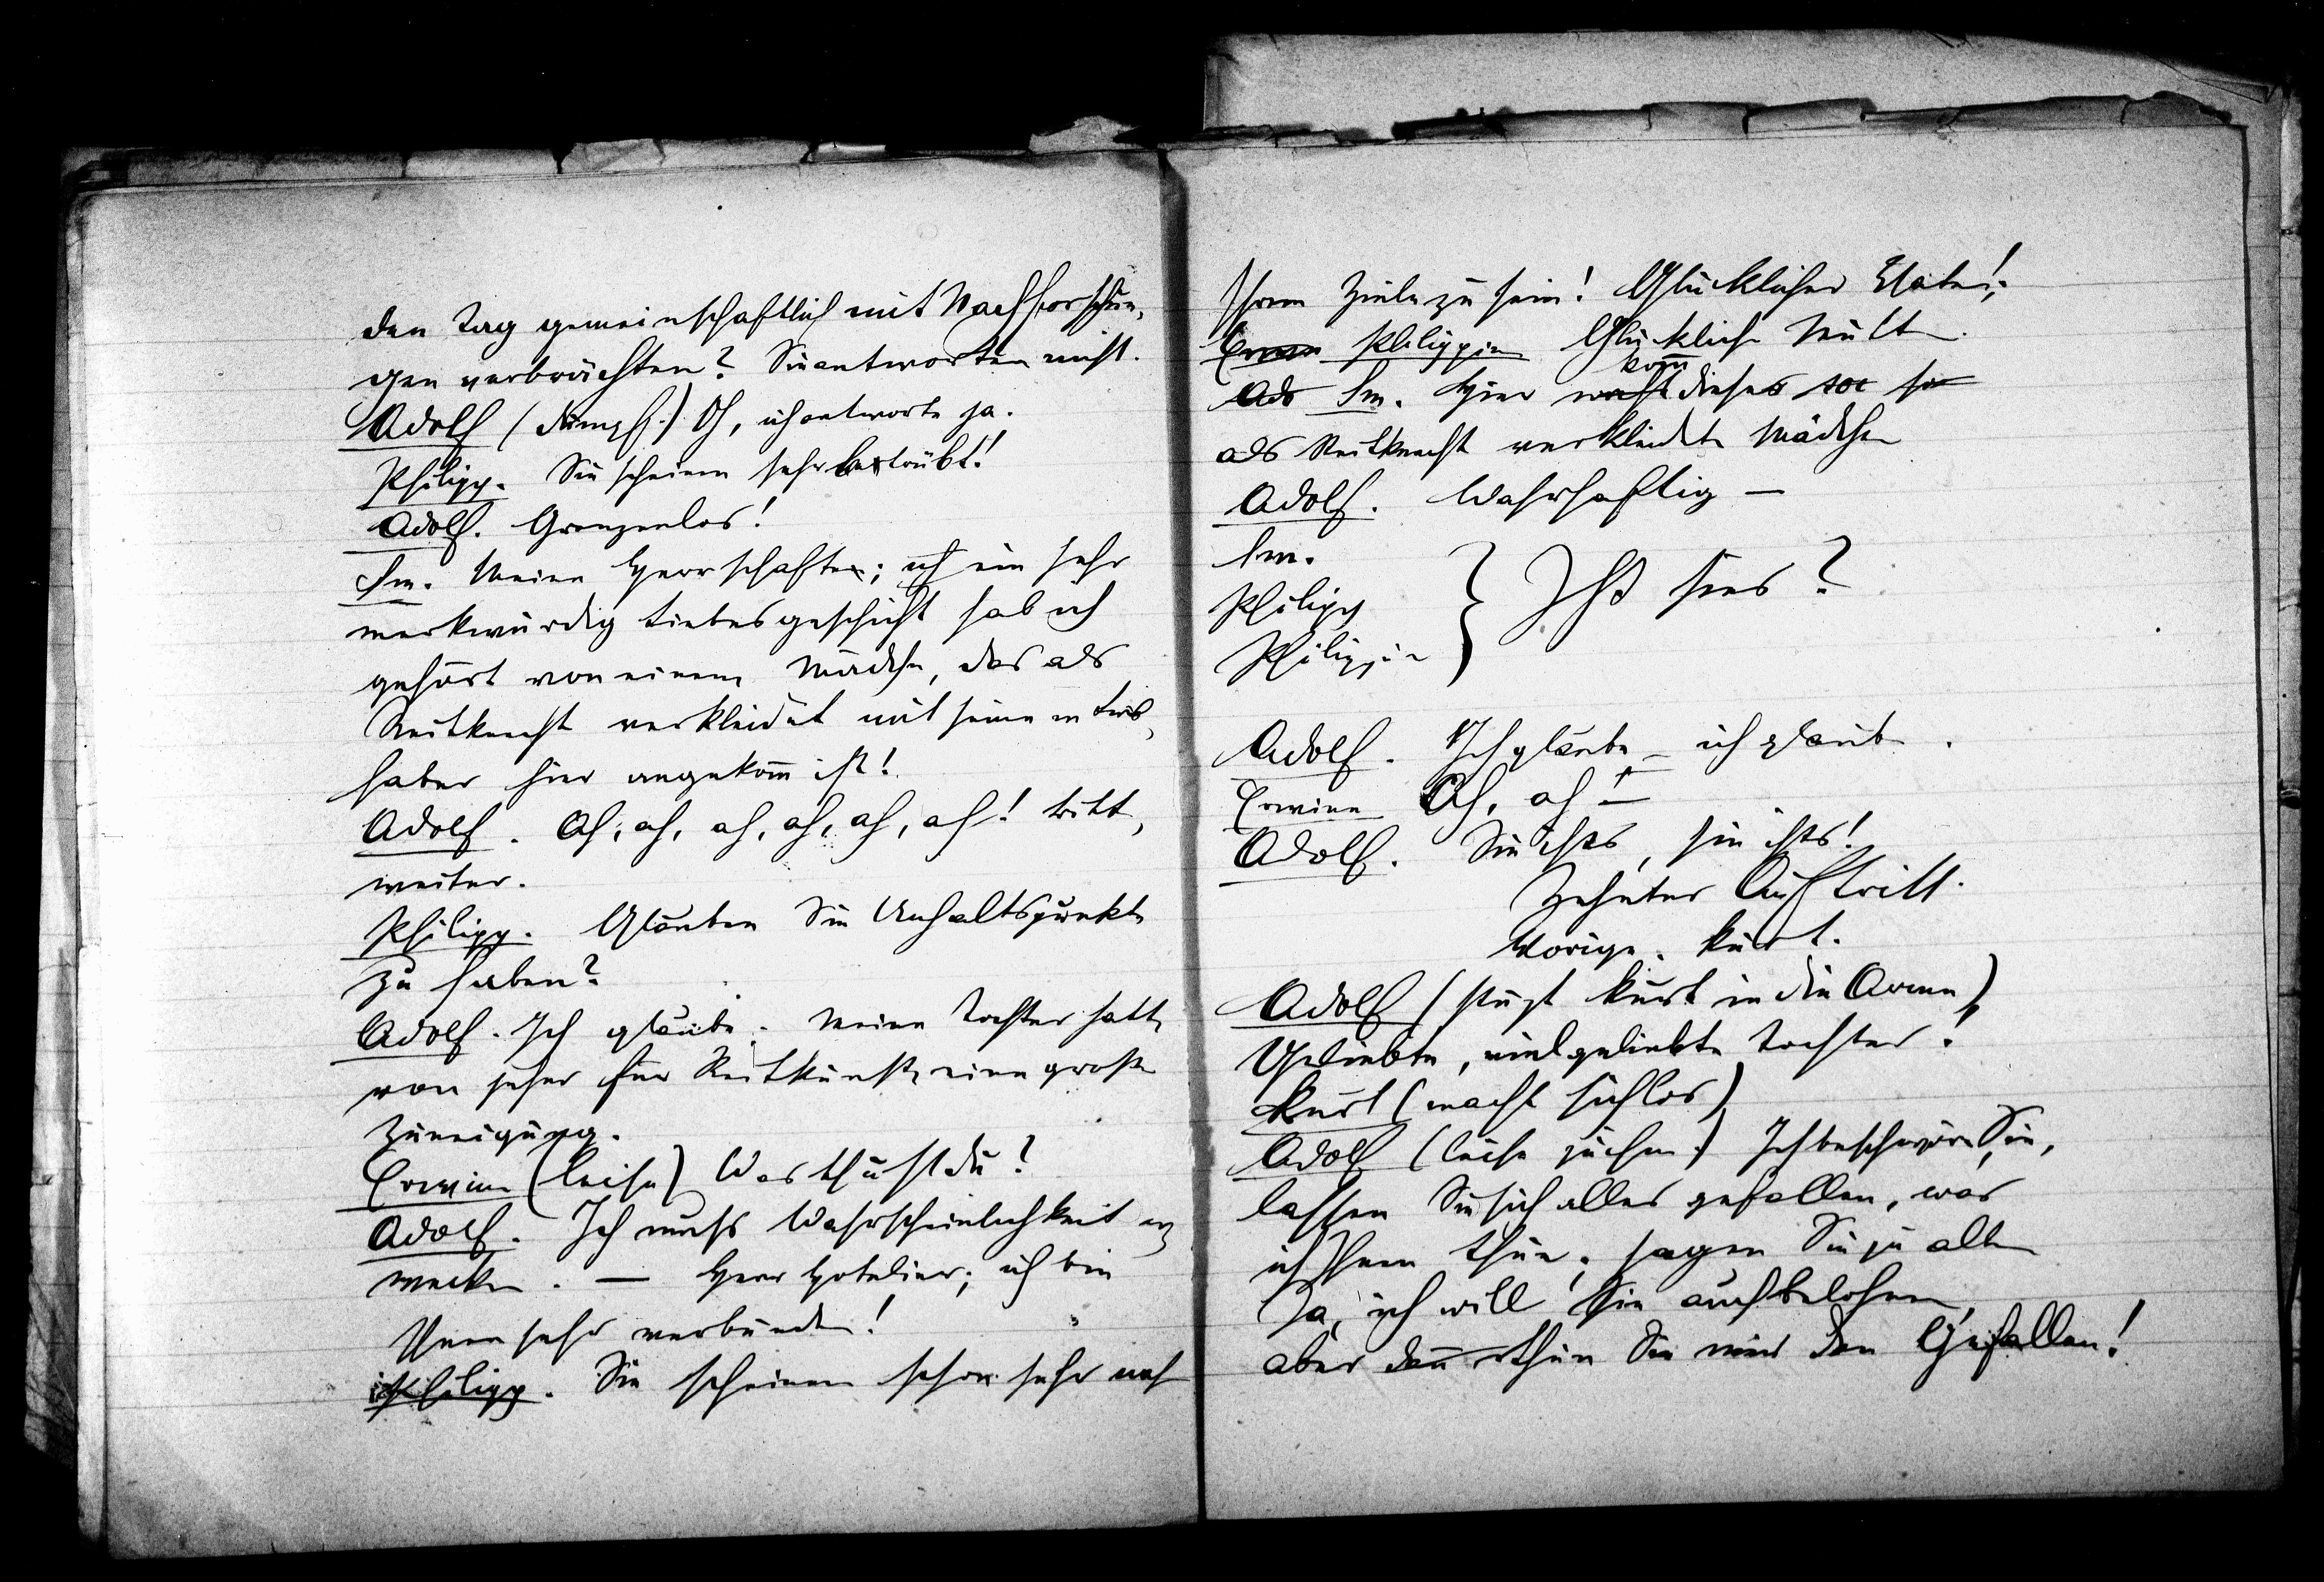 den Tag gemeinschaftlich mit Nachforschun-
gen verbrächten? Sie antworten nicht.
Adolf (dumpf.) O, ich antworte ja.
Philipp. Sie scheinen sehr betrübt!
Adolf. Grenzenlos!
Im. Meine Herrschaften; ich ein sehr
merkwürdig Liebesgeschicht hab ich
gehört von einem Mädchen, das als
Reitknecht verkleidet mit seinem Lieb-
haber hier angekom̄ ist!
Adolf. Ah, ah, ah, ah, ah, ah! bitt,
weiter.
Philipp. Glauben Sie Anhaltspunkte
zu haben?
Adolf. Ich glaube. Meine Tochter hatte
von jeher für Reitkünste eine große
Zuneigung.
Erwine (leise) Was thust du?
Adolf. Ich muß Wahrscheinlichkeit er-
wecken. — Herr Hotelier; ich bin
Ihnen sehr verbunden!
Philipp. Sie scheinen schon sehr nah
Ihrem Ziele zu sein! Glücklicher Vater!
Philippine Glückliche Mutter.
kom̄
Im. Hier dieses
als Reitknecht verkleidete Mädchen
Adolf. Wahrhaftig —
Im.
Philipp } Ist sies?
Philippin
Adolf. Ich glaube — ich glaube.
Erwine Ah, ah! —
Adolf. Sie ists, sie ists!
Zehnter Auftritt.
Vorige. Kurt.
Adolf (stürzt Kurt in die Arme)
Geliebte, vielgeliebte Tochter!
Kurt (macht sich los)
Adolf (leise zu ihm.) Ich beschwöre Sie,
lassen Sie sich alles gefallen, was
ich Ihnen thue; sagen Sie zu allem
Ja, ich will Sie auch belohnen,
aber den̄ thun Sie mir den Gefallen!